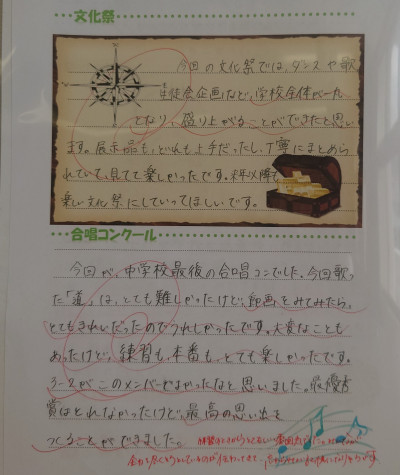 文化祭
今回の文化祭では、ダンスや歌
生徒会企画など、学校全体が一丸
となり、盛り上がることができたと思い
ます。展示品も、どれも上手だったし、丁寧にまとめら
れていて、見てて楽しかったです。来年以降も
楽しい文化祭にしていってほしいです。
合唱コンクール
今回が、中学校最後の合唱コンでした。今回歌っ
た「道」は、とても難しかったけど、動画をみてみたら、
とてもきれいだったのでうれしかったです。大変なことも
あったけど、練習も、本番も、とても楽しかったです。
3-2がこのメンバーでよかったなと思いました。最優秀
賞はとれなかったけど、最高の思い出を
つくることができました。